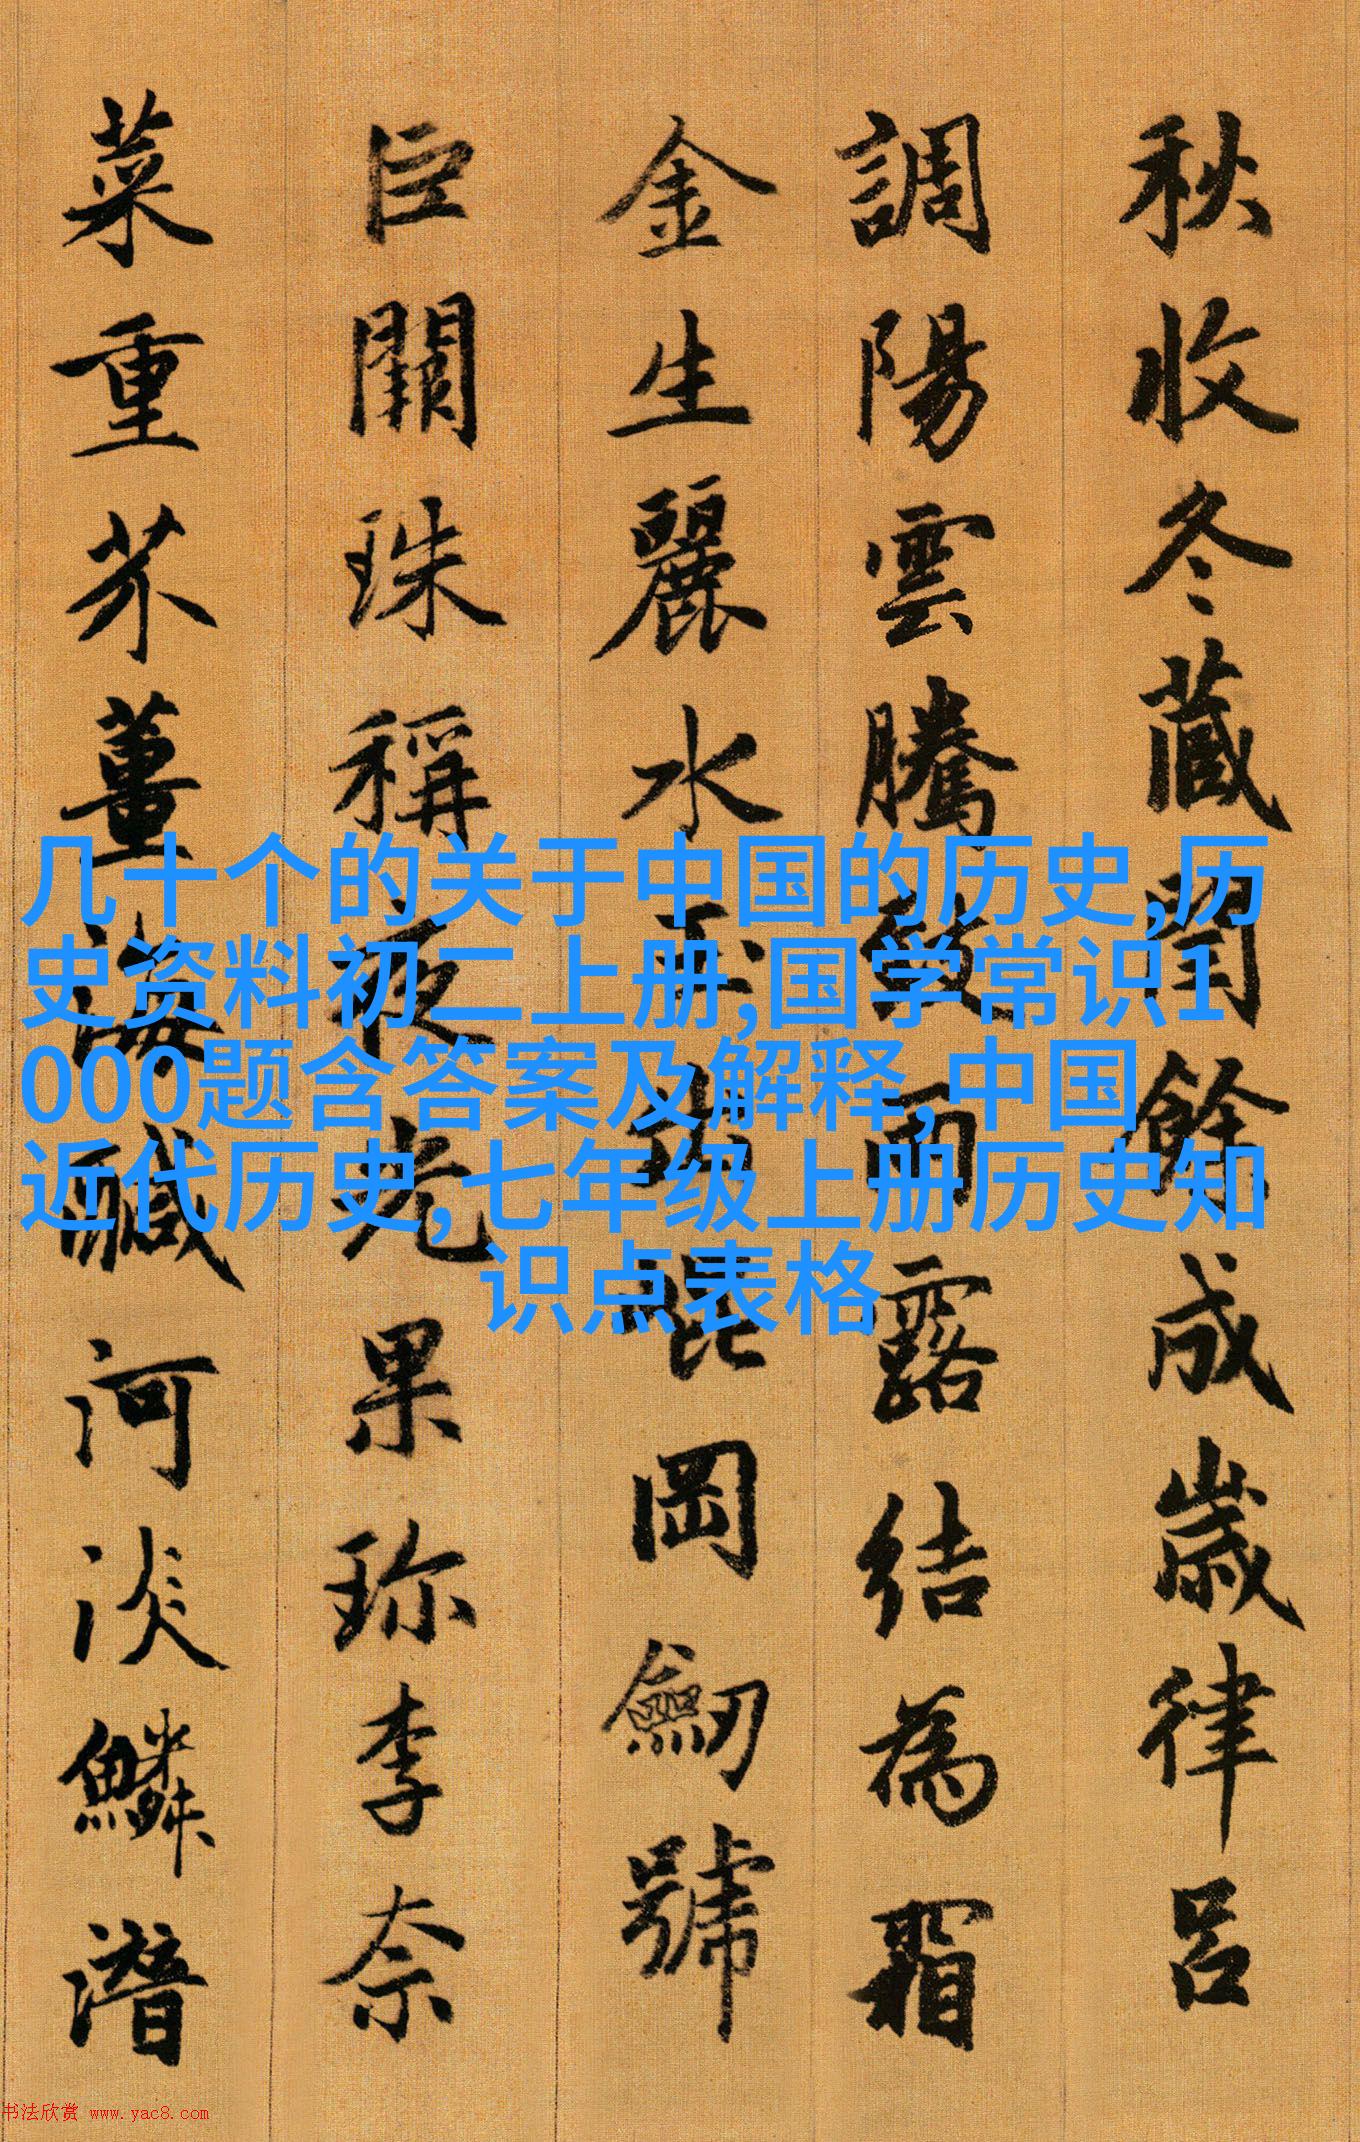 秋收冬藏閏餘成歲律呂
調陽雲騰致雨露結為霜
金生麗水玉出崑岡劒號
巨闕珠稱夜光果珎李奈
菜重芥薑海鹹河淡鱗潛
几十个的关于中国的历史,历
史资料初二上册,国学常识1
000题含答案及解释,中国
近代历史,七年级上册历史知
识点表格
书法欣赏 www.yac8.com